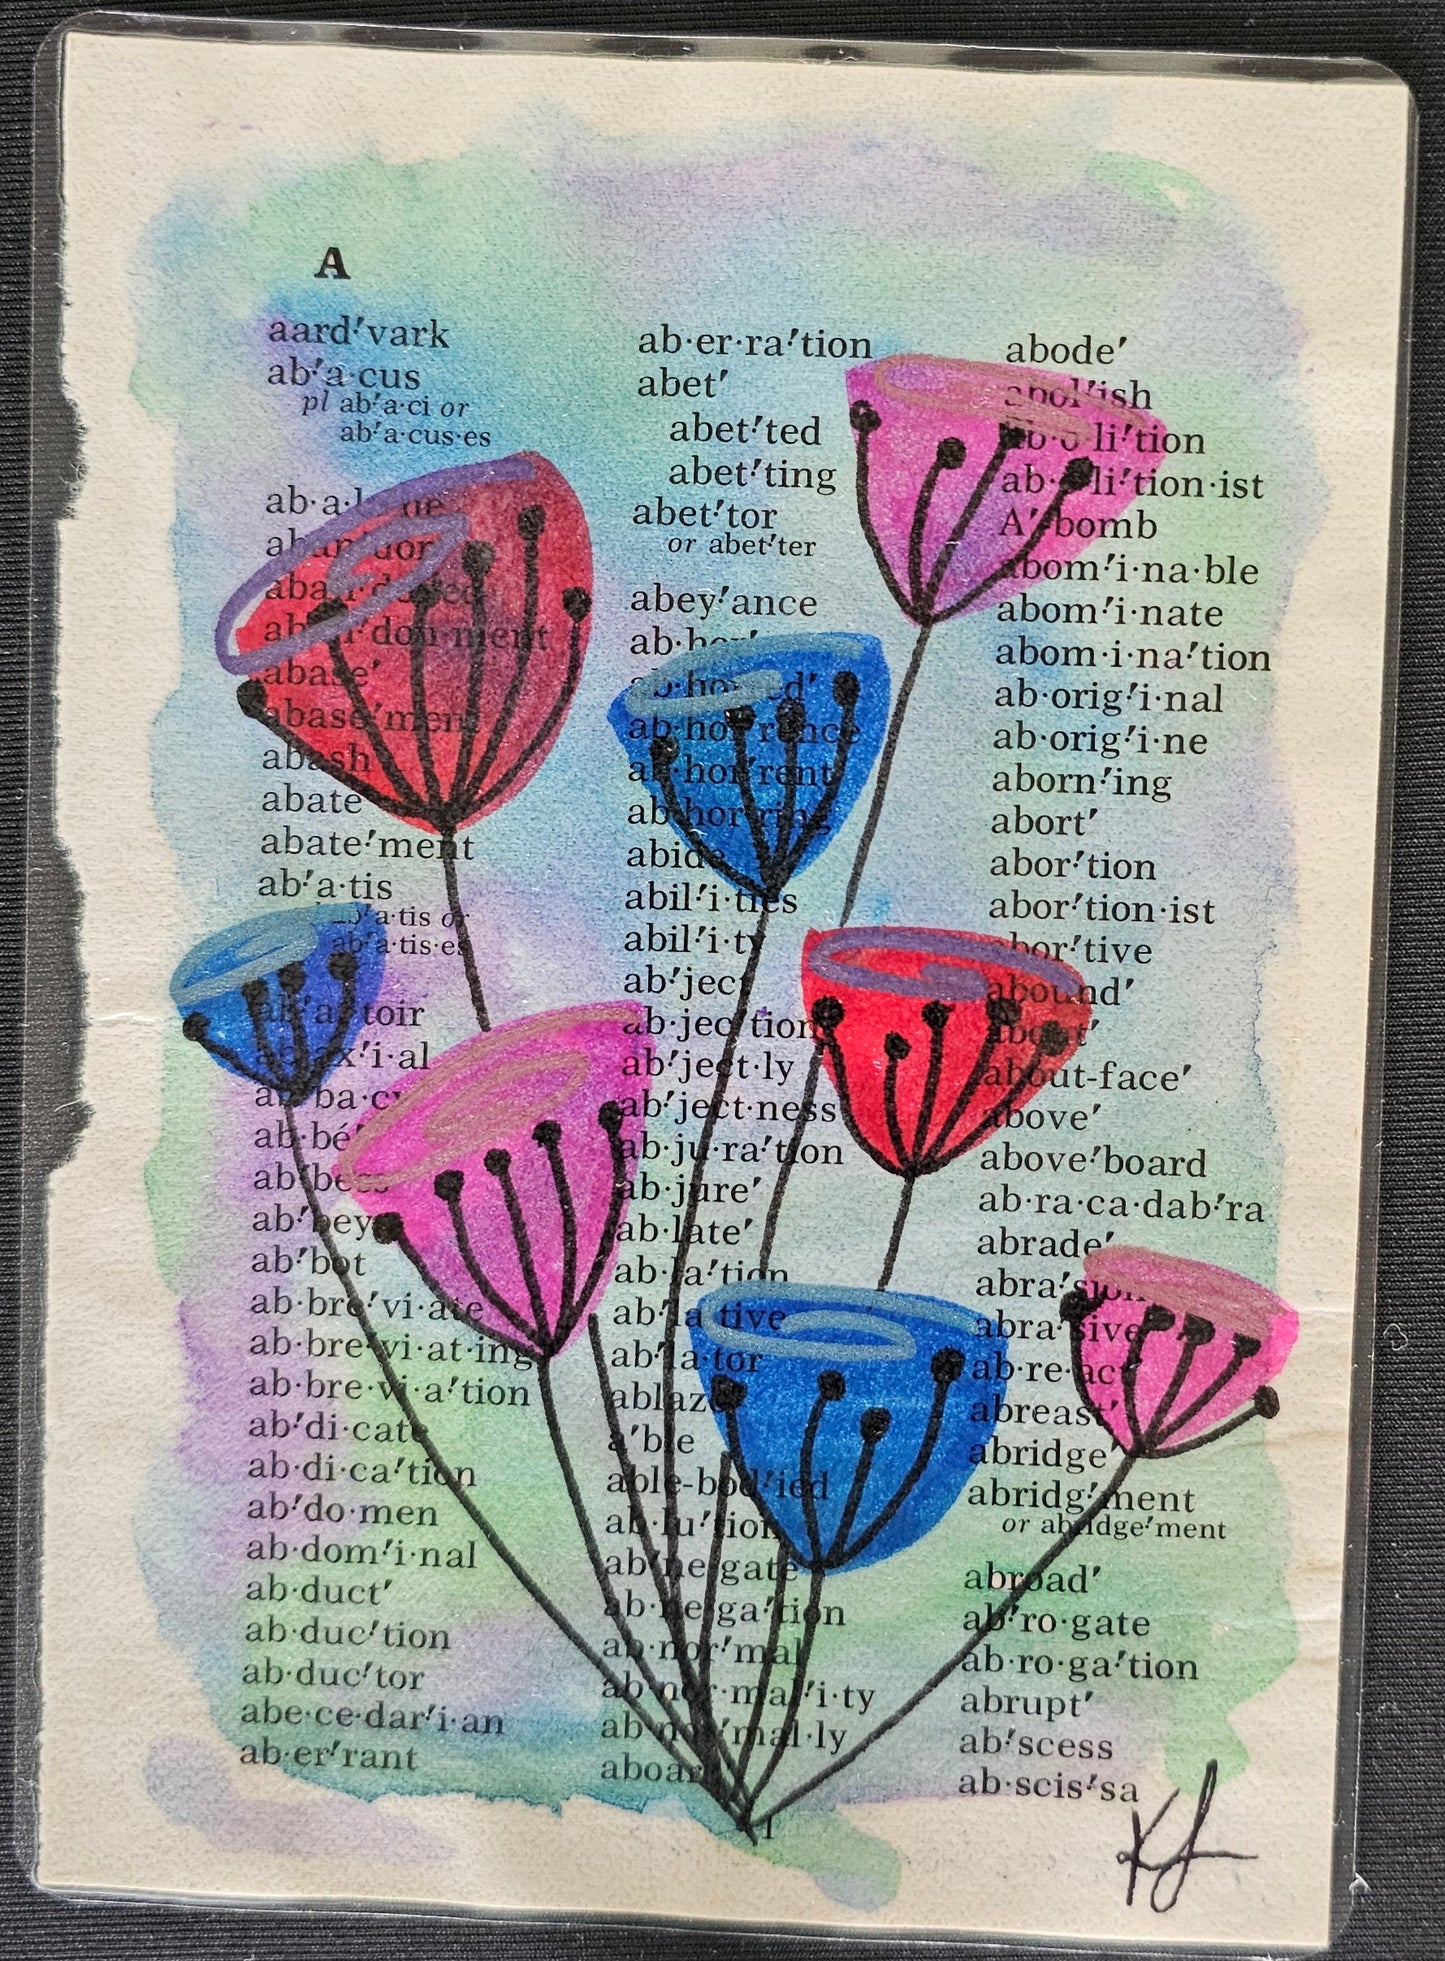 A
aard′vark
ab′a·cus
pl ab′a·ci or
ab′a·cus·es
aban′don·ment
abase′
abase′ment
abash
abate
abate′ment
ab′a·tis
ab′a·tis or
ab′a·tis·es
toir
i·al
ab′ba·cy
ab·bé′
ab′bess
ab′bey
ab′bot
ab·bre′vi·ate
ab·bre′vi·at·ing
ab·bre·vi·a′tion
ab′di·cate
ab·di·ca′tion
ab′do·men
ab·dom′i·nal
ab·duct′
ab·duc′tion
ab·duc′tor
abe·ce·dar′i·an
ab·er′rant
ab·er·ra′tion
abet′
abet′ted
abet′ting
abet′tor
or abet′ter
abey′ance
ab·hor′
ab·hor′rence
ab·hor′rent
ab·hor′ring
abide
abil′i·ties
abil′i·ty
ab′ject
ab·jec′tion
ab′ject·ly
ab′ject·ness
ab·ju·ra′tion
ab·jure′
ab·late′
ab·la′tion
ab′la·tive
ab′la·tor
ablaze
a′ble
able-bod′ied
ab·lu′tion
ab′ne·gate
ab·ne·ga′tion
ab·nor′mal
ab·nor·mal′i·ty
ab·nor′mal·ly
aboard
abode′
abol′ish
ab·o·li′tion
ab·o·li′tion·ist
A′-bomb
abom′i·na·ble
abom′i·nate
abom·i·na′tion
ab·orig′i·nal
ab·orig′i·ne
aborn′ing
abort′
abor′tion
abor′tion·ist
abor′tive
abound′
about′
about-face′
above′
above′board
ab·ra·ca·dab′ra
abrade′
abra′sion
abra′sive
ab·re·act′
abreast′
abridge′
abridg′ment
or abridge′ment
abroad′
ab′ro·gate
ab·ro·ga′tion
abrupt′
ab′scess
ab·scis′sa
1